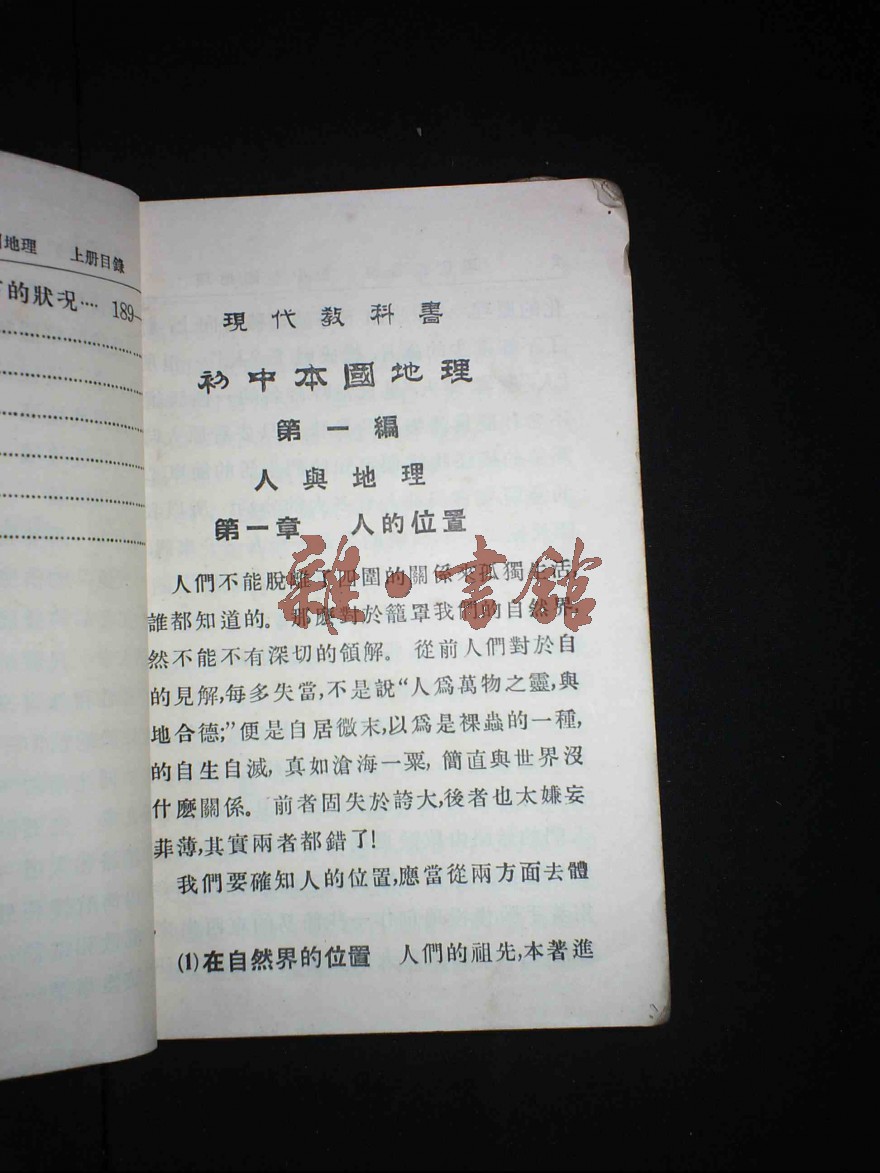 地理 上册目錄
的狀况…… 189—
現代教科書
初中本國地理
第一編
人與地理
第一章 人的位置
人們不能脫離了四圍的關係來孤獨生活,
誰都知道的。那麼對於籠罩我們的自然界,
然不能不有深切的領解。從前人們對於自
的見解,每多失當,不是說“人爲萬物之靈,與
地合德;”便是自居微末,以爲是裸蟲的一種,
的自生自滅,真如滄海一粟,簡直與世界沒
什麼關係。前者固失於誇大,後者也太嫌妄
菲薄,其實兩者都錯了!
我們要確知人的位置,應當從兩方面去體
(1)在自然界的位置 人們的祖先,本著進
雜·書館